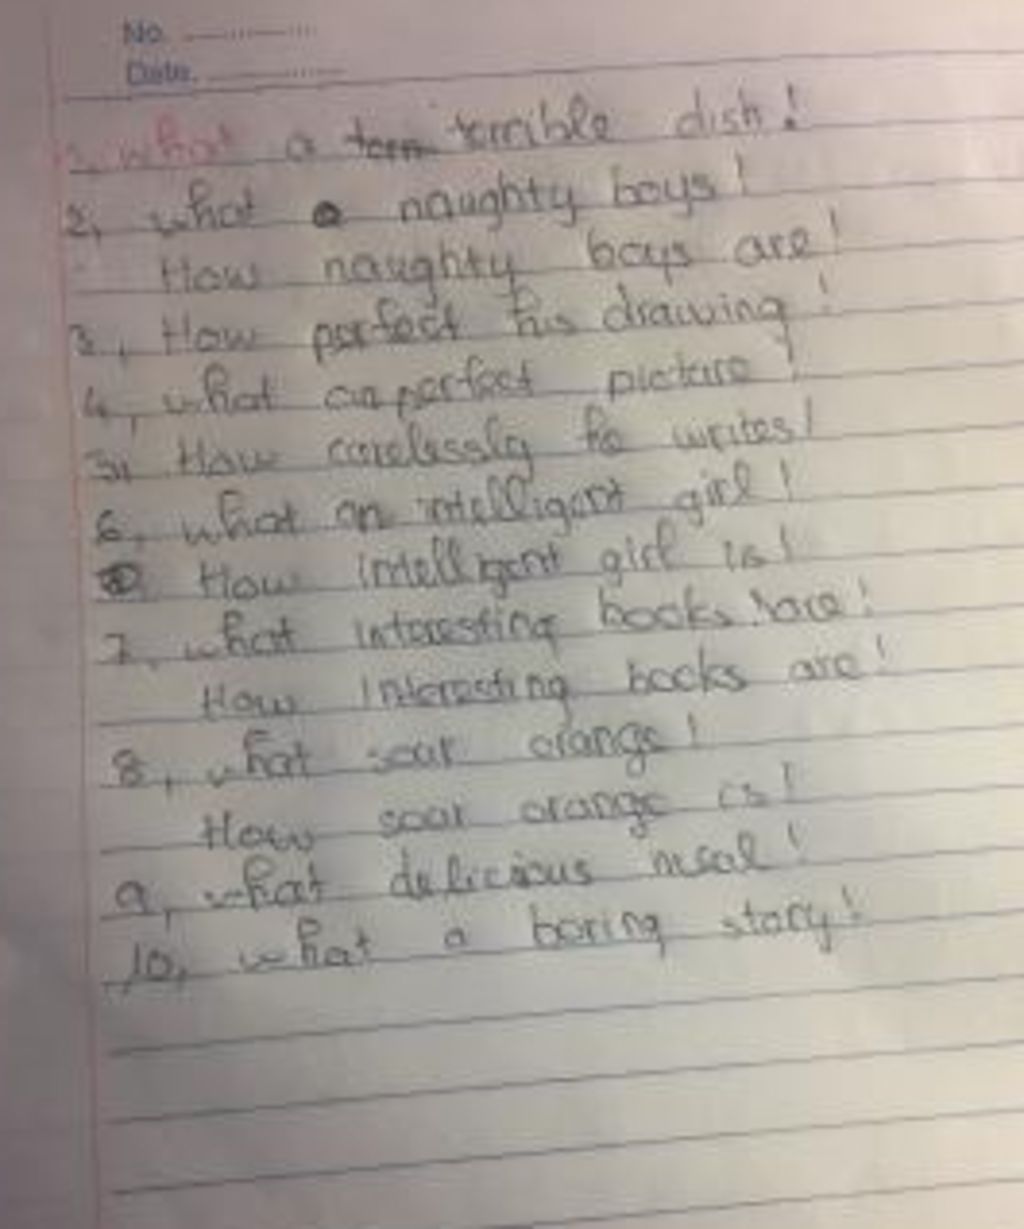 No.
Date.
1, what a terrible dish!
2, what naughty boys!
How naughty boys are!
3, How perfect his drawing!
4, what a perfect picture!
5, How carelessly he writes!
6, what an intelligent girl!
How intelligent girl is!
7, what interesting books are!
How interesting books are!
8, what sour orange!
How sour orange is!
9, what delicious meal!
10, what a boring story!